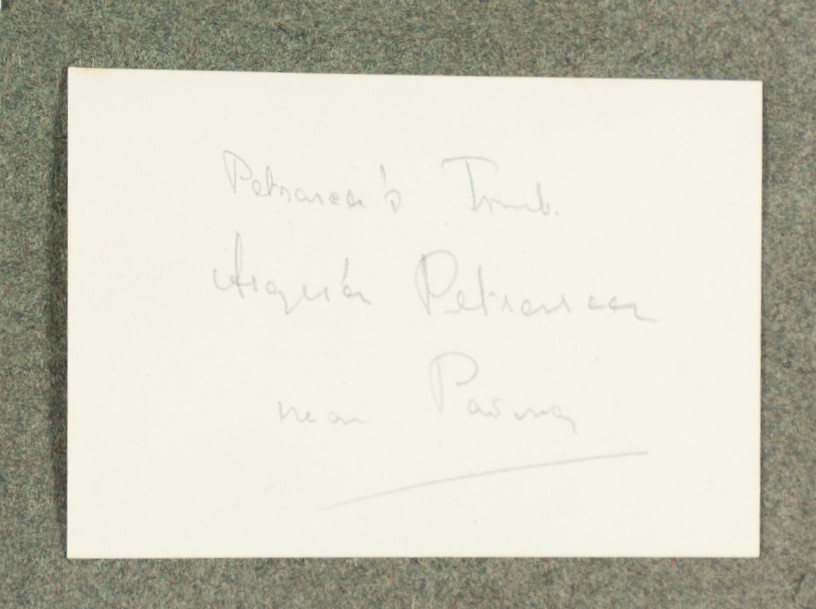 Petrarca's Tomb.
Arquà Petrarca
near Parma